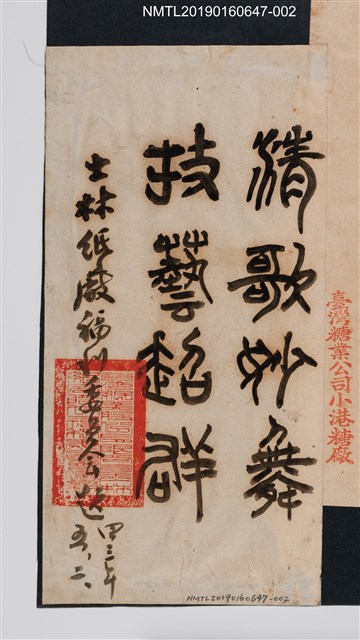 NMTL20190160647-002
清歌妙舞
技藝超群
士林紙廠福利委員會 贈
四三年
五、二、
臺灣糖業公司小港糖廠
NMTL20190160647-002